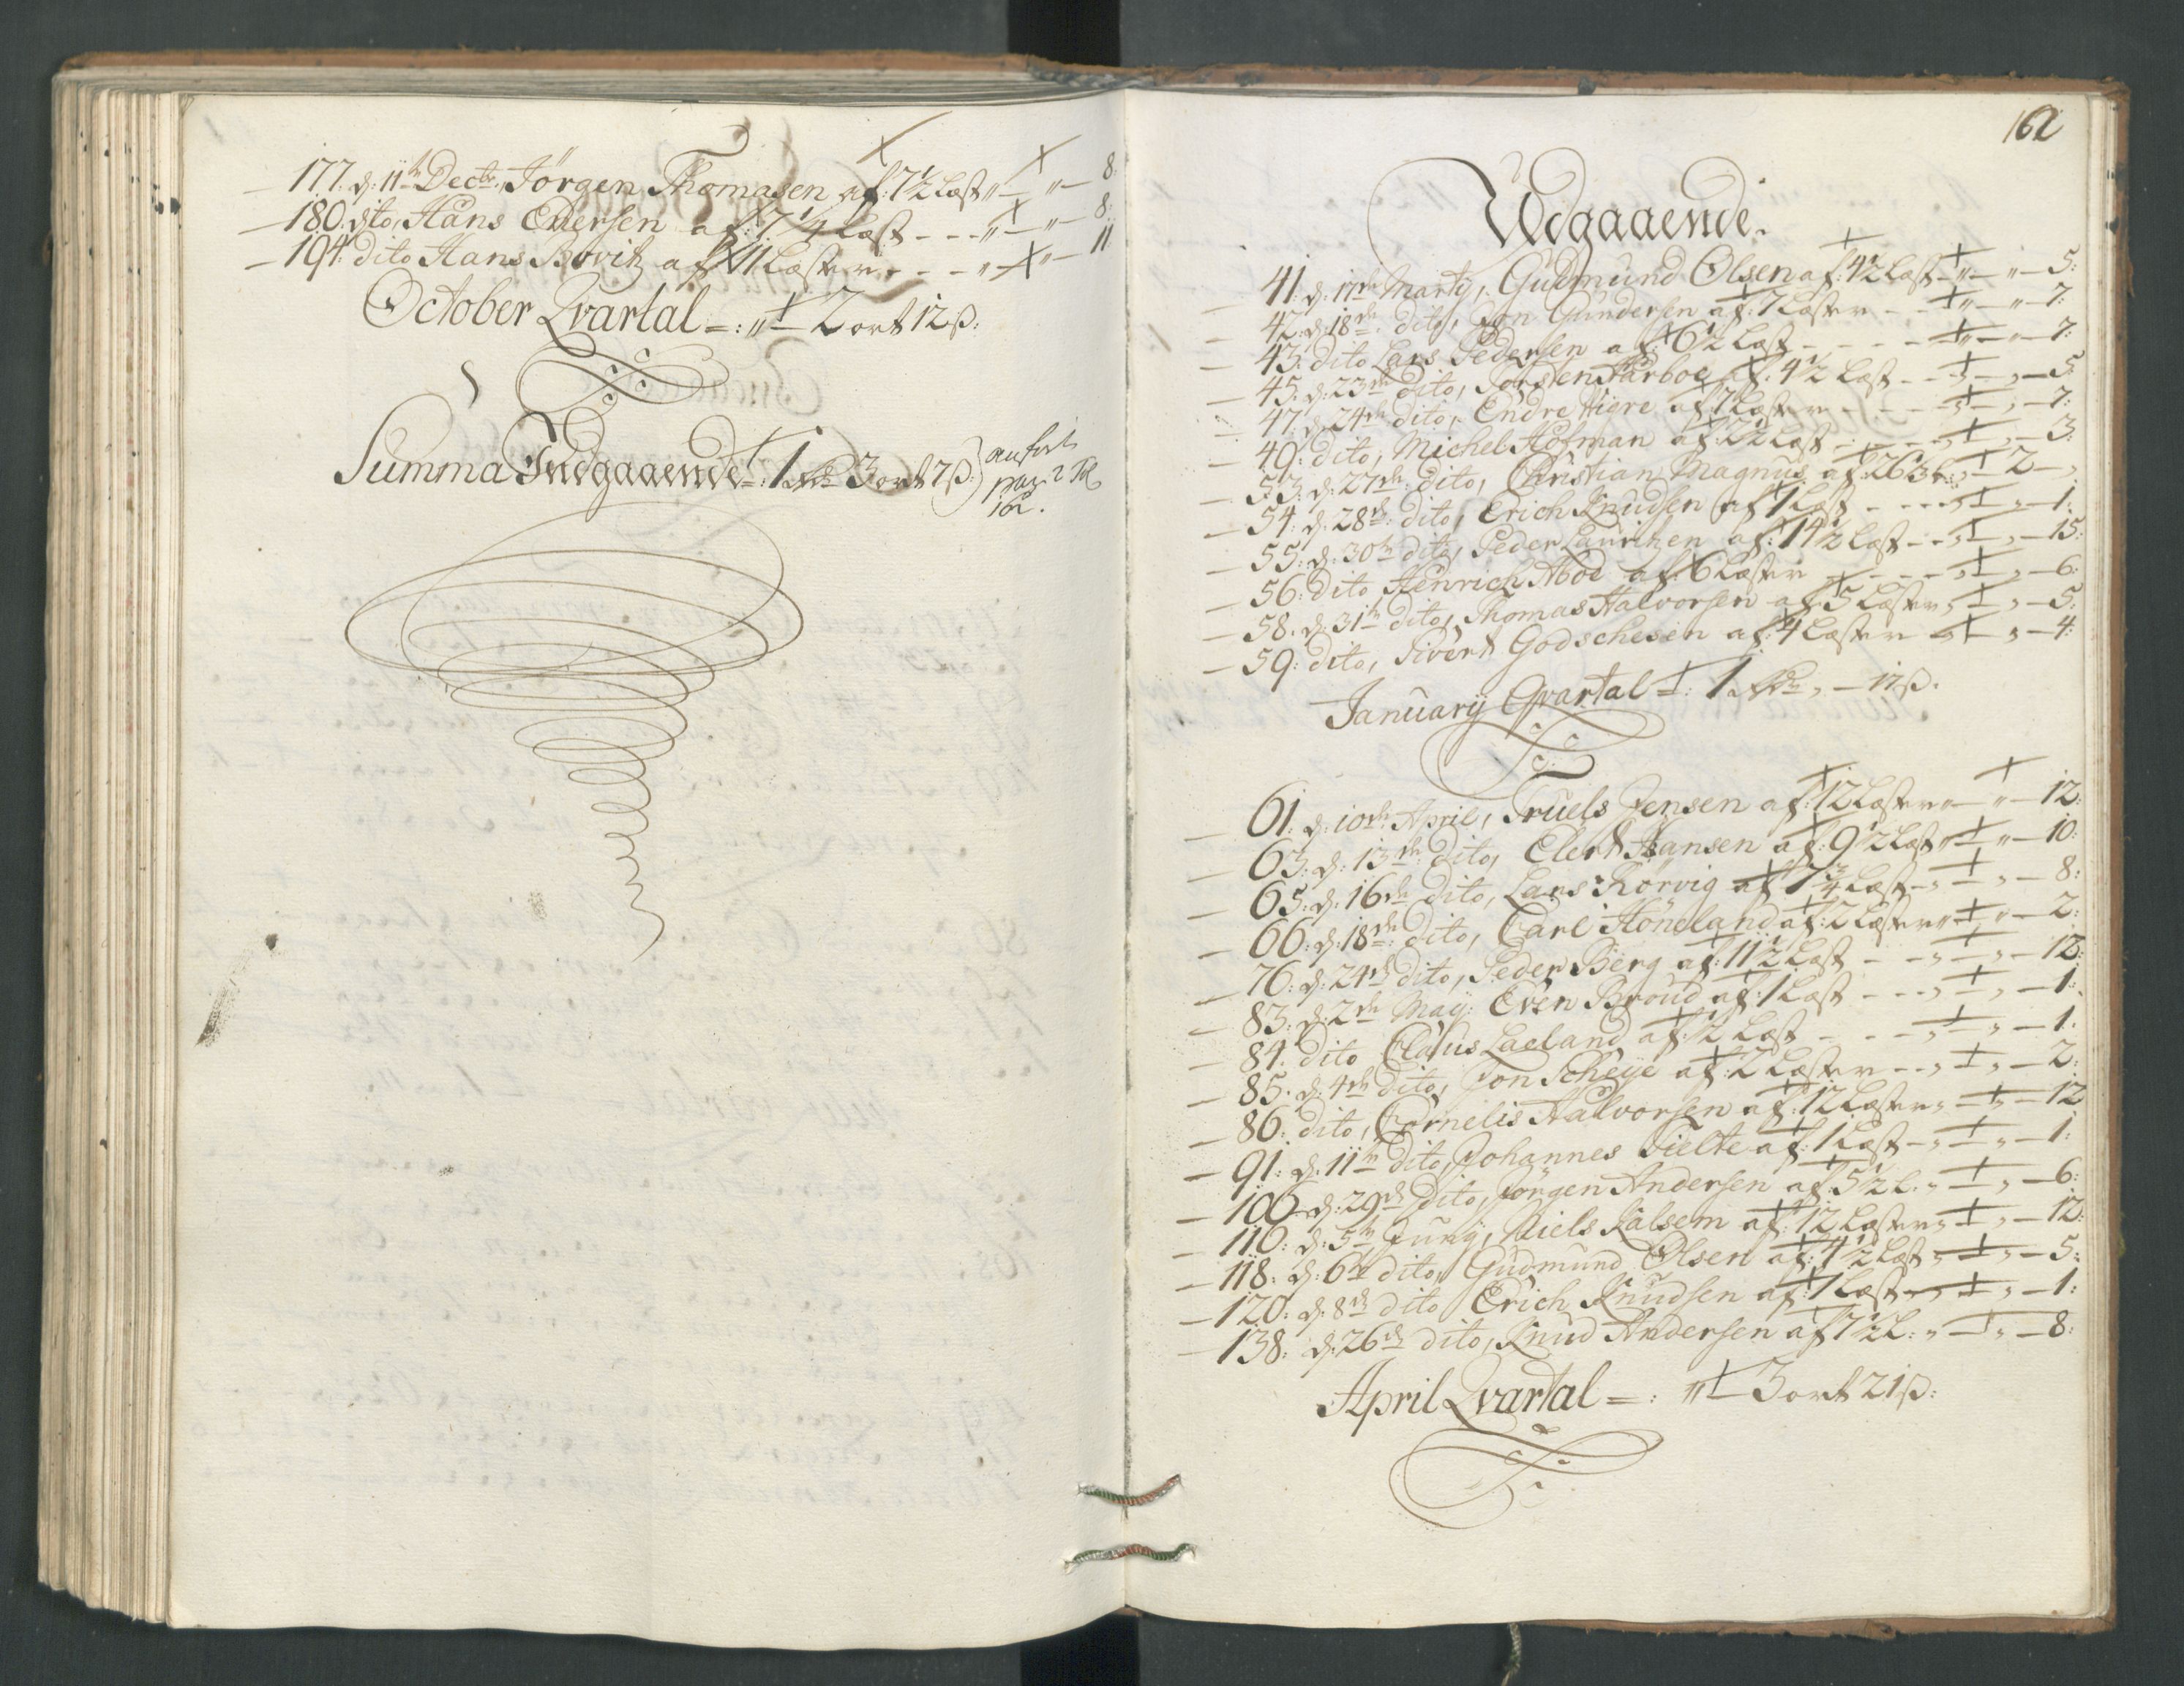 — 177. d: 11te Decbr, Jörgen Thomasen af: 7½ Læst „ — „ — 8:
— 180. dto, Hans Enersen af: 7¼ Læst - - - „ — „ — 8:
— 194: dito Hans Bovitz af 11 Læster - - - „ — „ — 11
October Qvartal =: „ — 2 ort 12 ß:
Summa Indgaaende =: 1 Rdr 3 ort 7 ß:
anført
pag:
162.
162
Udgaaende.
— 41: d: 17de Marty, Gudmund Olsen af: 4½ Læst — „ — „ — 5:
— 42: d: 18de dito, Jon Gundersen af: 7 Læster - - — „ — „ — 7:
— 43: dito Lars Pedersen af: 6½ Læst - - - - — „ — „ — 7:
— 45: d: 23de dito, Torsten Farboe af: 4½ Læst - - „ — „ — 5:
— 47: d: 24de dito, Endre Tiøre af 7 Læster - - - - „ — „ — 7:
— 49: dito, Michel Hofman af: 2½ Læst - - - - „ — „ — 3:
— 53: d: 27de dito, Christian Magnus af: 26 3/4 L: „ — 2 — „
— 54: d: 28de dito, Erich Knudsen af 1 Læst - - - - „ — „ — 1:
— 55: d: 30te dito, Peder Lauritzen af: 14½ Læst - - „ — „ — 15:
— 56: dito Henrich Aboe af: 6 Læster - - - - „ — „ — 6:
— 58: d: 31te dito, Thomas Halvorsen af 5 Læster „ — „ — 5:
— 59: dito, Sivert Godschesen af: 4 Læster - „ — „ — 4:
January Qvartal =: 1 Rdr „ — 17 ß.
— 61: d: 10de April, Truels Jensen af: 12 Læster „ — „ — 12:
— 63: d: 13de dito, Elert Hansen af: 9½ Læst „ — „ — 10:
— 65: d: 16de dito, Lars Rörvig af 7¾ Læst - „ — „ — 8:
— 66: d: 18de dito, Carl Höneland af: 2 Læster „ — „ — 2:
— 76: d: 24de dito, Peder Berg af: 11½ Læst - - „ — „ — 12:
— 83: d: 2de May: Even Broud af: 1 Læst - - - „ — „ — 1:
— 84: dito Claus Laeland af: ½ Læst - - - „ — „ — 1:
— 85: d: 4de dito, Jon Scheije af: 2 Læster - - „ — „ — 2:
— 86: dito, Cornelis Halvorsen af: 12 Læster „ — „ — 12
— 91: d: 11te dito, Johannes Tielte af: 1 Læst - „ — „ — 1:
— 106 d: 29de dito, Jörgen Andersen af: 5½ L: „ — „ — 6:
— 116: d: 5te Juny, Niels Kalsem af: 12 Læster „ — „ — 12:
— 118: d: 6te dito, Gudmund Olsen af: 4½ Læst „ — „ — 5:
— 120: d: 8de dito Erich Knudsen af: 1 Læst - „ — „ — 1:
— 138: d: 26de dito, Knud Andersen af 7½ L: „ — „ — 8:
April Qvartal =: „ — 3 ort 21 ß: